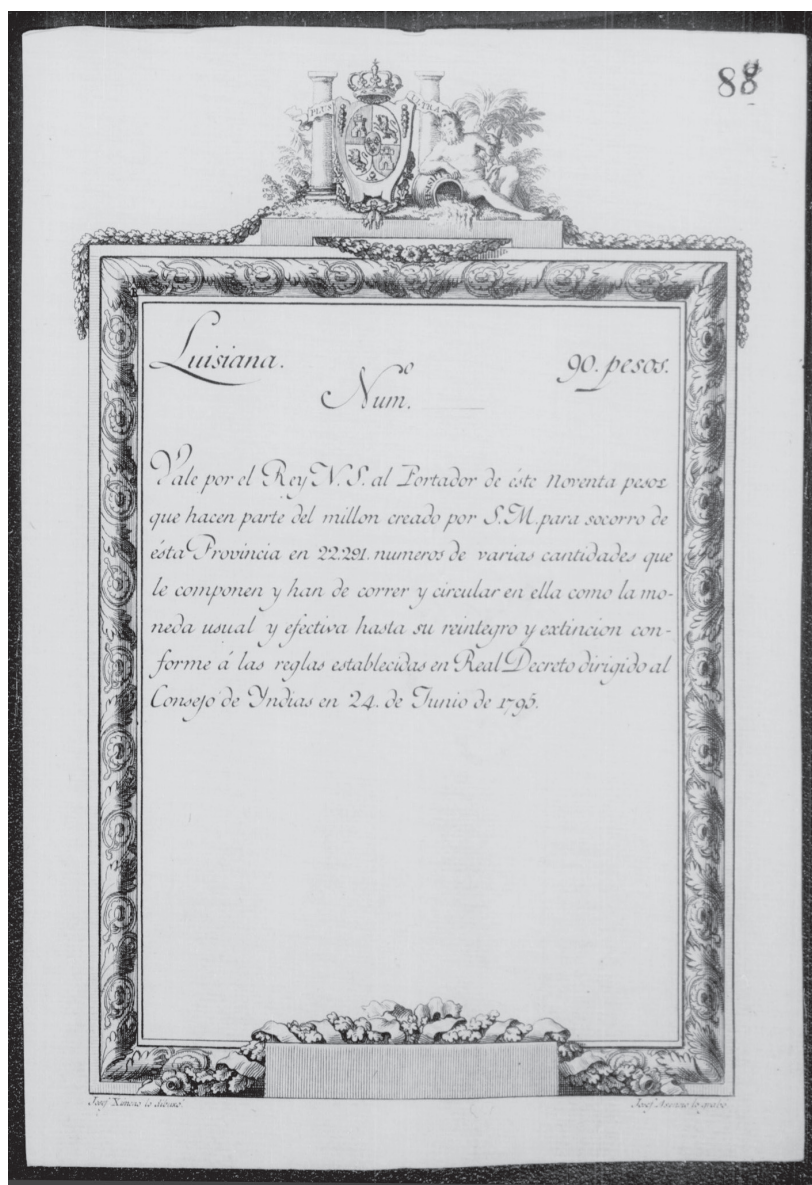 88
PLUS
TRA
Luisiana.
90. pesos.
Num.º
Vale por el Rey N. S. al Portador de éste Noventa pesos
que hacen parte del millon creado por S. M. para socorro de
ésta Provincia en 22.291. numeros de varias cantidades que
le componen y han de correr y circular en ella como la mo-
neda usual y efectiva hasta su reintegro y extincion con-
forme á las reglas establecidas en Real Decreto dirigido al
Consejo de Yndias en 24. de Junio de 1795.
Josef Ximeno lo dibuxó.
Josef Asensio lo grabó.